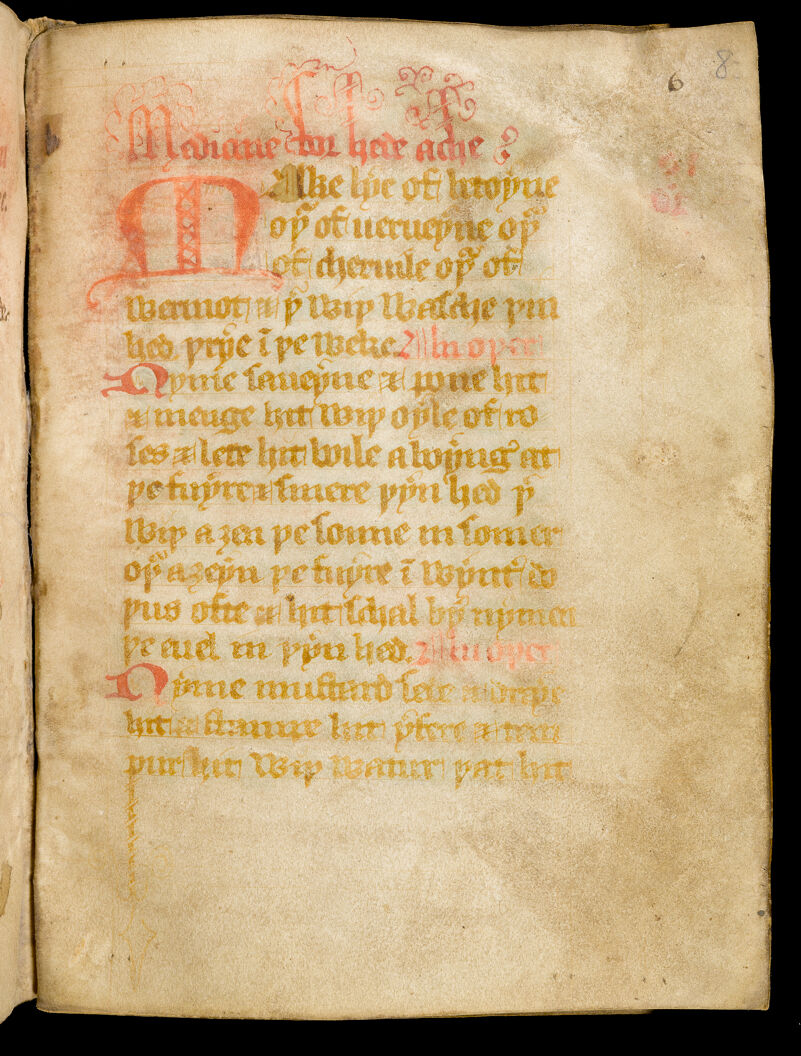 6 8
Medicine for hede ache
Make lye of bitoyne
oþʳ of uerueyne oþʳ
of cheruile oþʳ of
wermot & þʳ wiþ wasche þin
hed þrye ī þe weke. An oþer
Nyme saueyne & pone hit
& menge hit wiþ oyle of ro
ses & lete hit wile a at
þe fuyre & smere þyn hed þʳ
wiþ a ȝen þe sonne in somer
oþʳ aȝeyn þe fuyre ī wyntʳ do
þus ofte & hit schal by nymen
þe euel in þyn hed. An oþer
Nyme mustard sede & drye
hit & hit & tem
pur hit wiþ watur þat hit